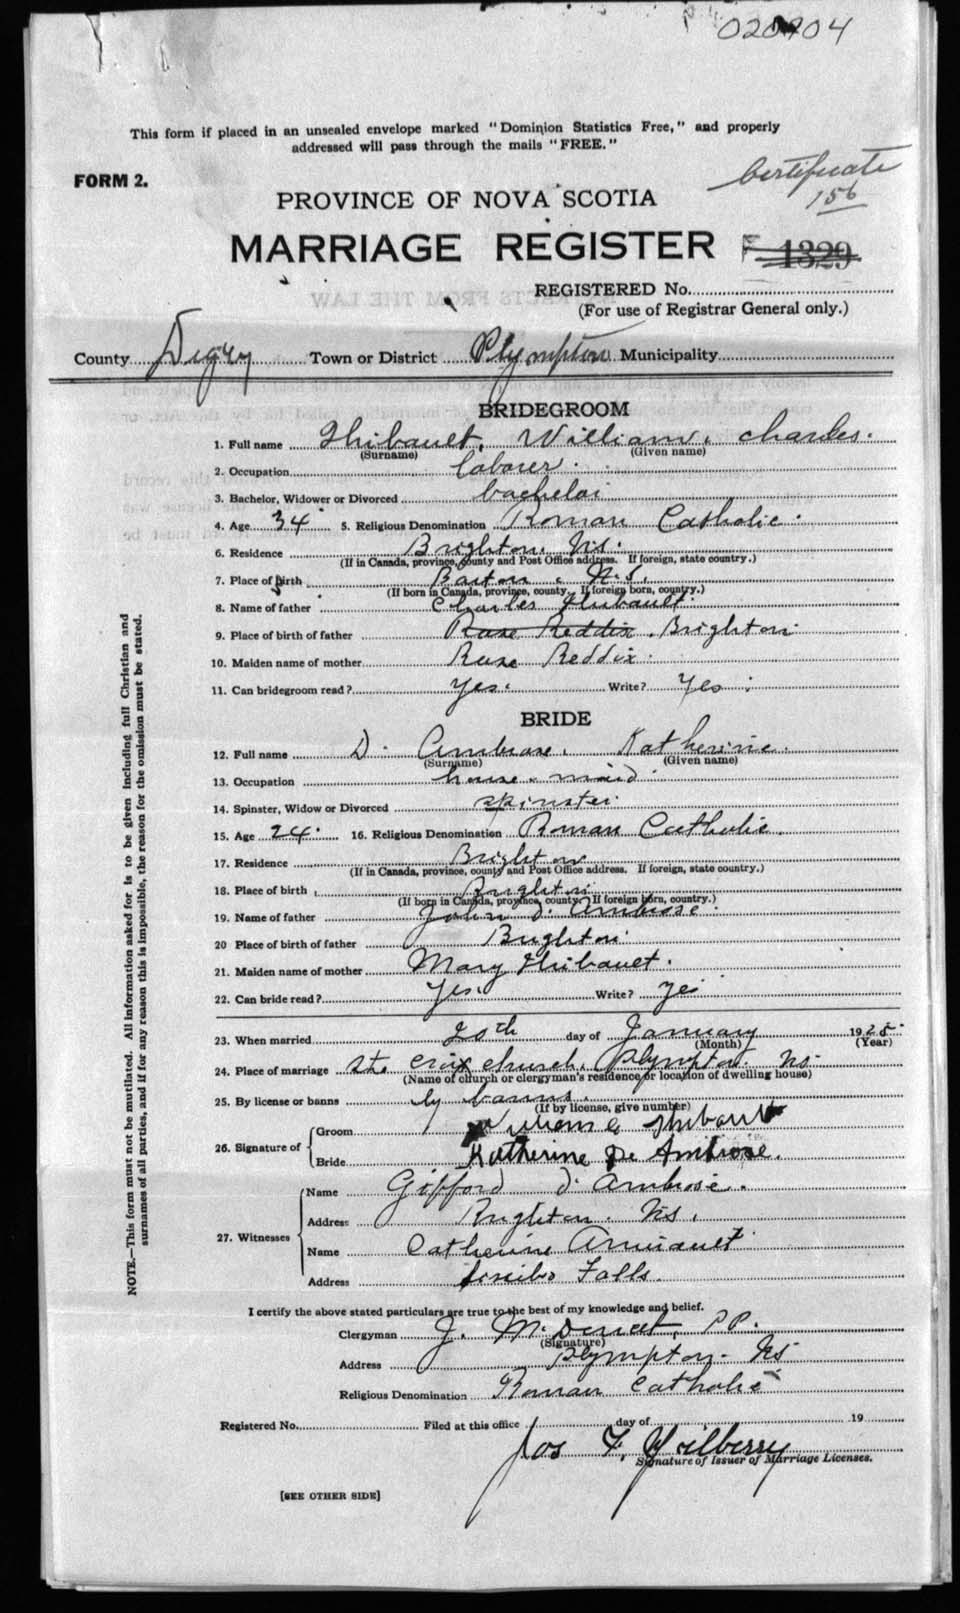 020904
This form if placed in an unsealed envelope marked "Dominion Statistics Free," and properly
addressed will pass through the mails "FREE."
FORM 2.
Certificate
156
PROVINCE OF NOVA SCOTIA
MARRIAGE REGISTER
1329
REGISTERED No.
(For use of Registrar General only.)
County Digby Town or District Plympton Municipality
BRIDEGROOM
1. Full name Thibault, William, Charles.
(Surname) (Given name)
2. Occupation laborer.
3. Bachelor, Widower or Divorced bachelor
4. Age 34 5. Religious Denomination Roman Catholic.
6. Residence Brighton, N.S.
(If in Canada, province, county and Post Office address. If foreign, state country.)
7. Place of birth Barton. N.S.
(If born in Canada, province, county. If foreign born, country.)
8. Name of father Charles Thibault.
9. Place of birth of father Rose Reddix. Brighton
10. Maiden name of mother Rose Reddix.
11. Can bridegroom read? Yes. Write? Yes
BRIDE
12. Full name D. Ambrose. Katherine.
(Surname) (Given name)
13. Occupation house. maid.
14. Spinster, Widow or Divorced spinster
15. Age 24. 16. Religious Denomination Roman Catholic.
17. Residence Brighton
(If in Canada, province, county and Post Office address. If foreign, state country.)
18. Place of birth Brighton
(If born in Canada, province, county. If foreign born, country.)
19. Name of father John D. Ambrose.
20 Place of birth of father Brighton
21. Maiden name of mother Mary Thibault.
22. Can bride read? Yes. Write? Yes
23. When married 20th day of January 1925
(Month) (Year)
24. Place of marriage Ste Croix church, Plympton. NS
(Name of church or clergyman's residence or location of dwelling house)
25. By license or banns by banns.
(If by license, give number)
26. Signature of Groom William C Thibault
Bride Katherine De Ambrose.
27. Witnesses Name Gifford D. Ambrose.
Address Brighton. NS.
Name Catherine Amirault
Address Falls.
I certify the above stated particulars are true to the best of my knowledge and belief.
Clergyman J. M. Doucet, P.P.
(Signature)
Address Plympton. NS
Religious Denomination Roman Catholic
Registered No. Filed at this office day of 19
Jos F.
Signature of Issuer of Marriage Licenses.
[SEE OTHER SIDE]
NOTE.—This form must not be mutilated. All information asked for is to be given including full Christian and
surnames of all parties, and if for any reason this is impossible, the reason for the omission must be stated.